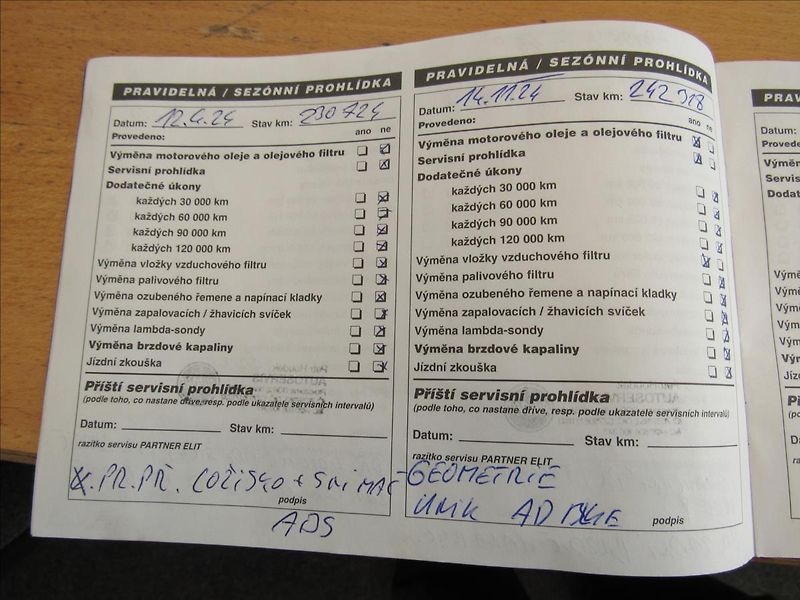 PRAVIDELNÁ / SEZÓNNÍ PROHLÍDKA
Datum: 12.4.24 Stav km: 230 724
Provedeno: ano ne
Výměna motorového oleje a olejového filtru
Servisní prohlídka
Dodatečné úkony
každých 30 000 km
každých 60 000 km
každých 90 000 km
každých 120 000 km
Výměna vložky vzduchového filtru
Výměna palivového filtru
Výměna ozubeného řemene a napínací kladky
Výměna zapalovacích / žhavicích svíček
Výměna lambda-sondy
Výměna brzdové kapaliny
Jízdní zkouška
Příští servisní prohlídka
(podle toho, co nastane dříve, resp. podle ukazatele servisních intervalů)
Datum: Stav km:
razítko servisu PARTNER ELIT
PR. PŘ. LOŽISKO + SNIMAČ
podpis
ABS
PRAVIDELNÁ / SEZÓNNÍ PROHLÍDKA
Datum: 14.11.24 Stav km: 242 918
Provedeno: ano ne
Výměna motorového oleje a olejového filtru
Servisní prohlídka
Dodatečné úkony
každých 30 000 km
každých 60 000 km
každých 90 000 km
každých 120 000 km
Výměna vložky vzduchového filtru
Výměna palivového filtru
Výměna ozubeného řemene a napínací kladky
Výměna zapalovacích / žhavicích svíček
Výměna lambda-sondy
Výměna brzdové kapaliny
Jízdní zkouška
Příští servisní prohlídka
(podle toho, co nastane dříve, resp. podle ukazatele servisních intervalů)
Datum: Stav km:
razítko servisu PARTNER ELIT
GEOMETRIE
UNIK AD BLUE
podpis